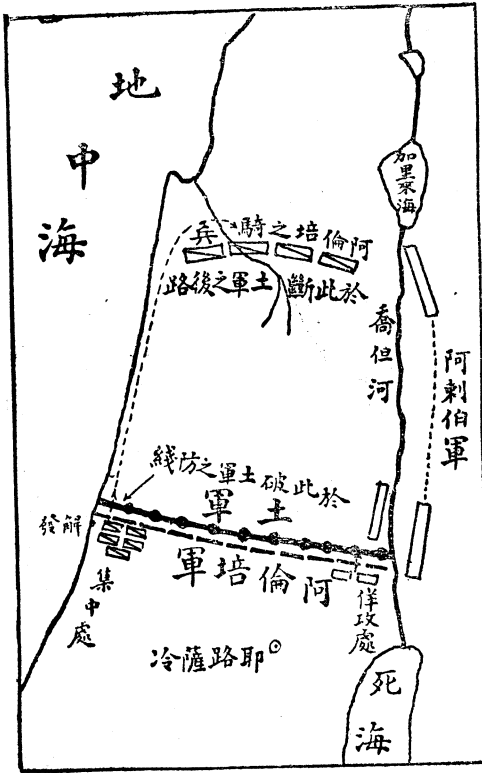 地中海
加里來海
阿倫培之騎兵
於此斷土軍之後路
喬但河
阿剌伯軍
於此破土軍之防綫
土軍
解發
阿倫培軍
集中處
佯攻處
耶路薩冷
死海